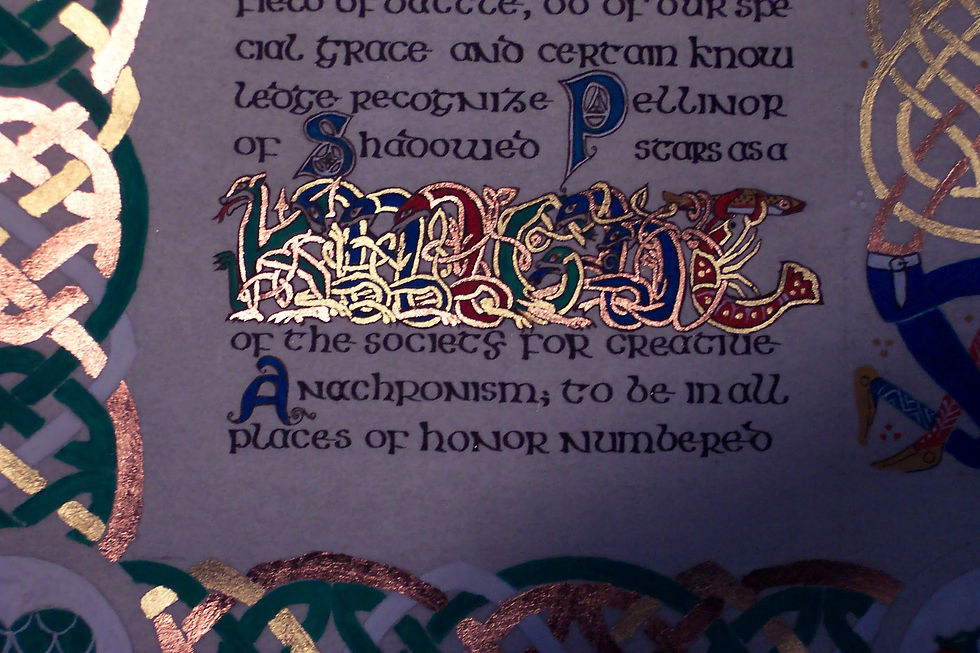 field of battle, do of our spe
cial grace and certain know
ledge recognize Pellinor
of Shadowed Stars as a
KNIGHT
of the society for creative
Anachronism; to be in all
places of honor numbered